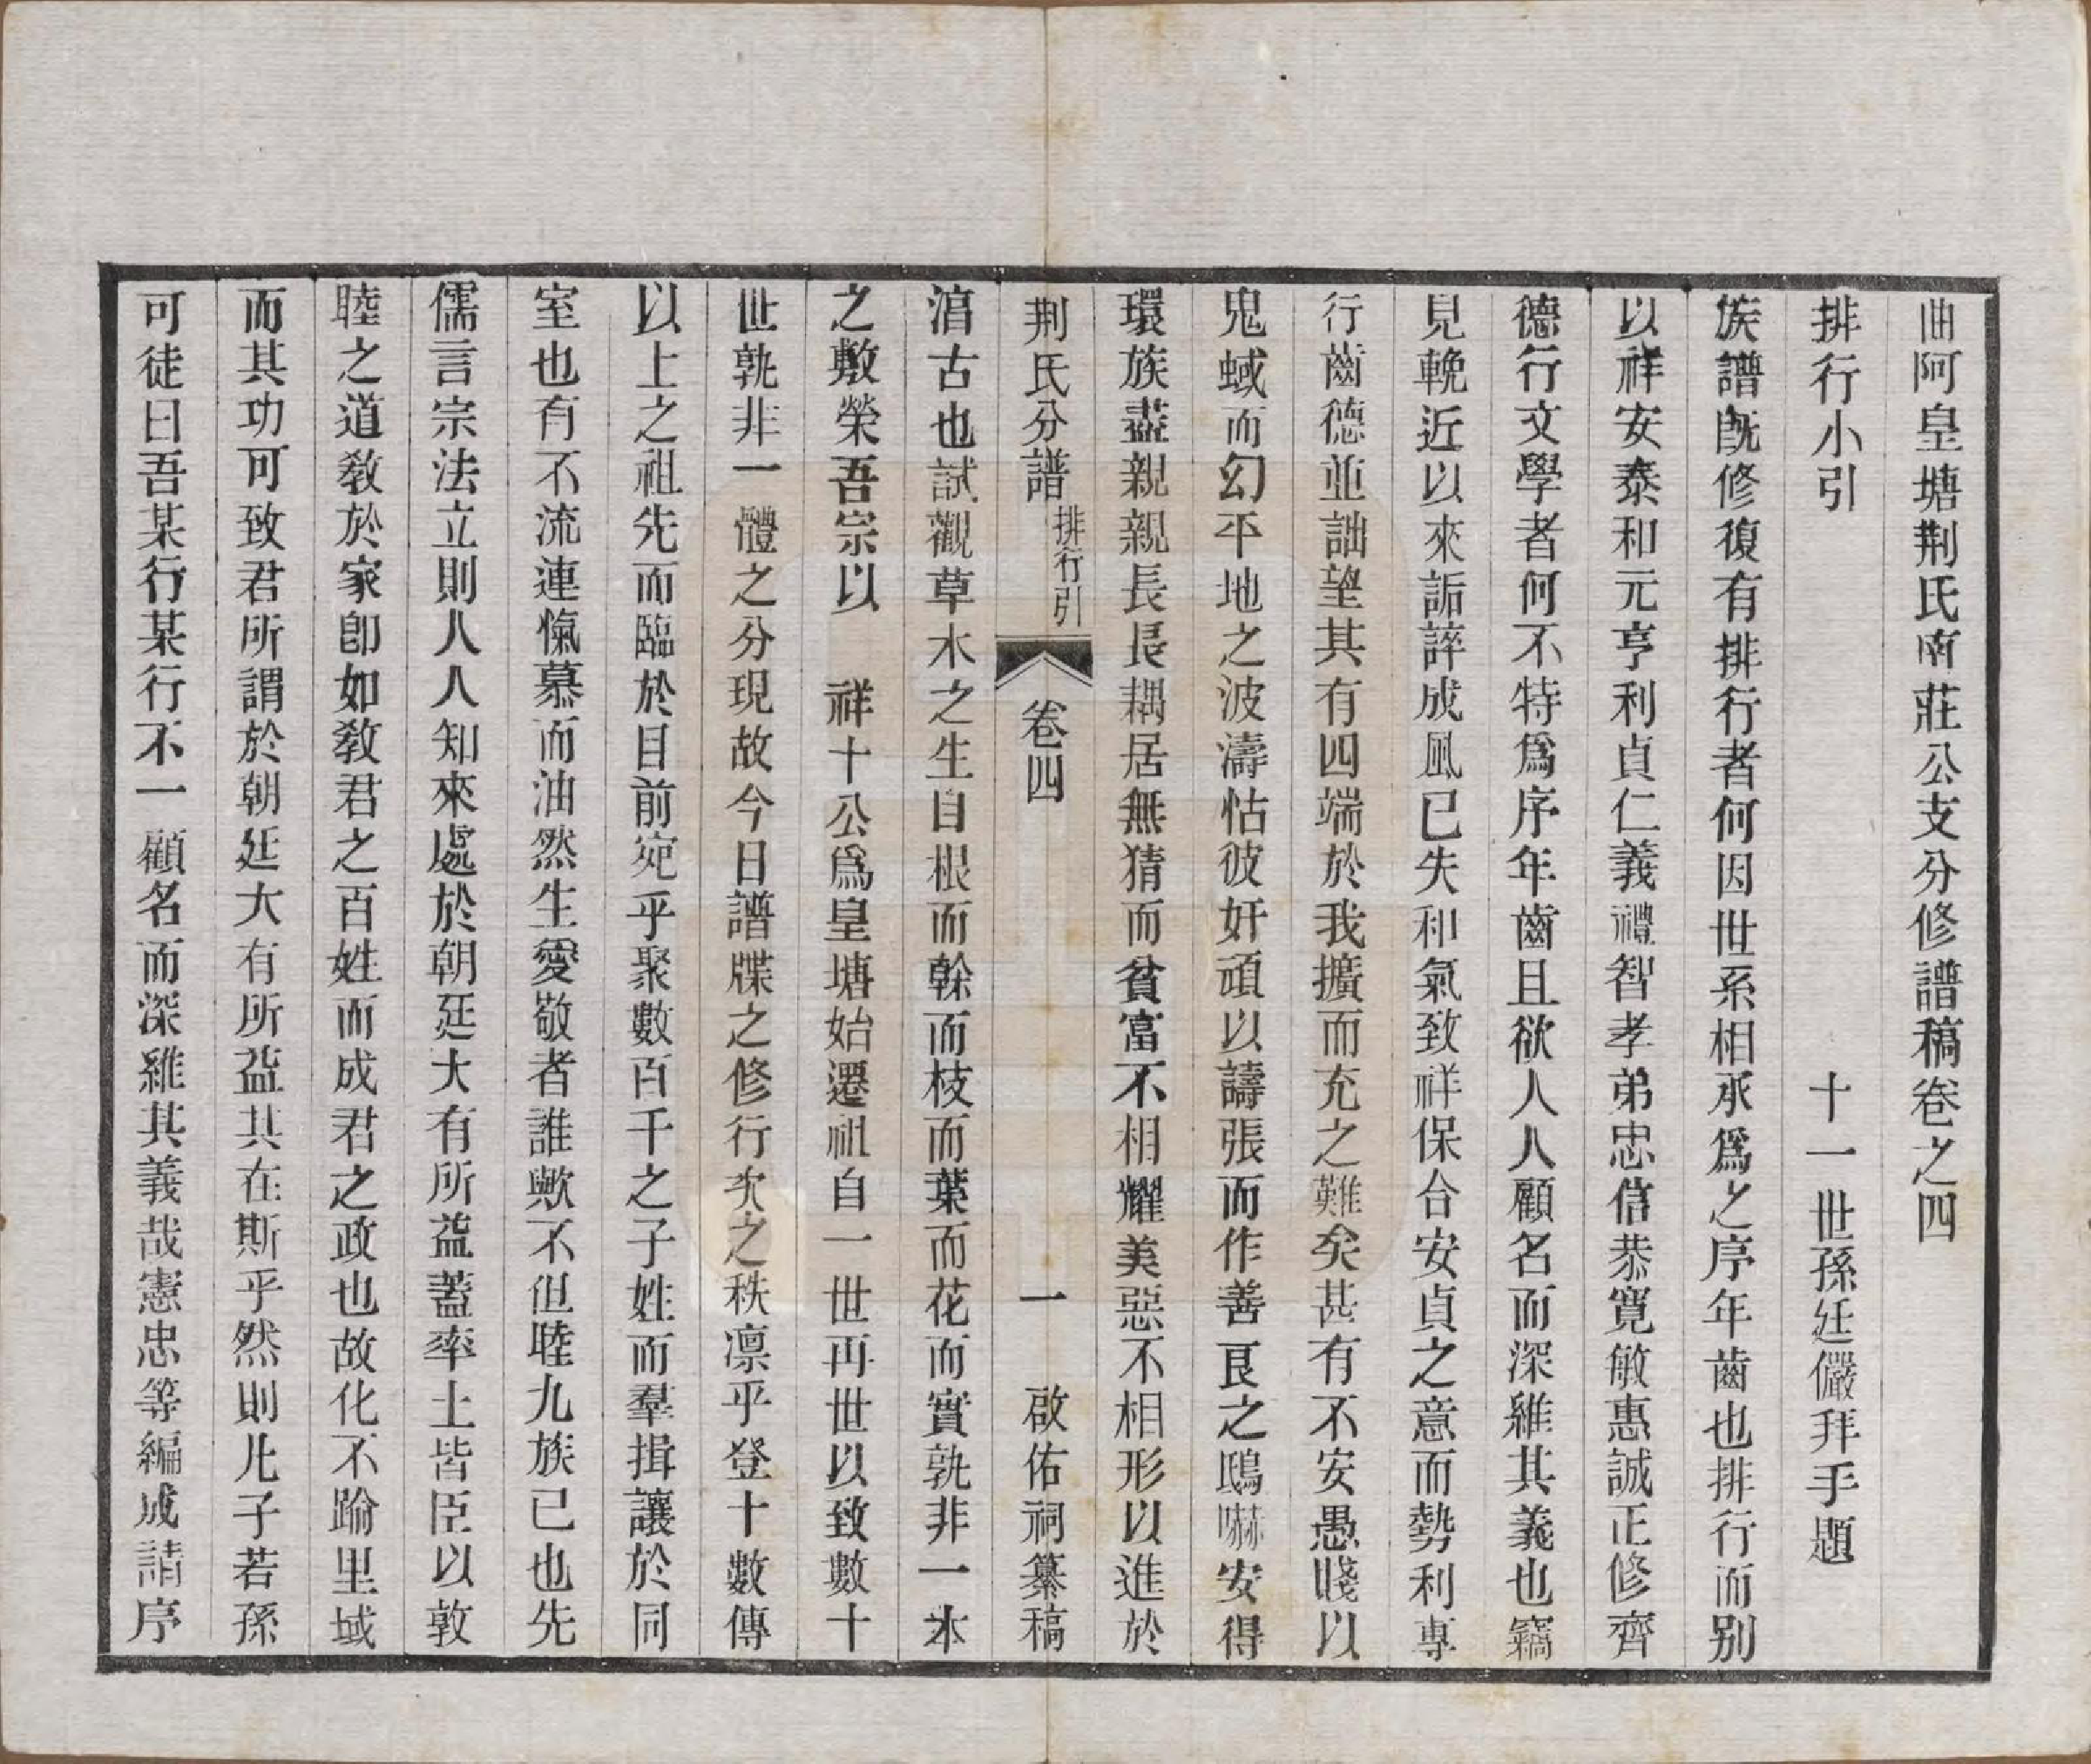 曲阿皇塘荆氏南莊公支分修譜稿卷之四
排行小引　十一世孫廷儼拜手題
族譜旣修復有排行者何因世系相承爲之序年齒也排行而别
以祥安泰和元亨利貞仁義禮智孝弟忠信恭寛敏惠誠正修齊
德行文學者何不特爲序年齒且欲人人顧名而深維其義也竊
見輓近以來詬誶成風已失和氣致祥保合安貞之意而勢利專
行齒德並詘望其有四端於我擴而充之難矣甚有不安愚賤以
鬼蜮而幻平地之波濤怙彼奸頑以譸張而作善良之鴟嚇安得
環族盡親親長長耦居無猜而貧富不相耀美惡不相形以進於
荆氏分譜 排行引 卷四 一 啟佑祠纂稿
湻古也試觀草木之生自根而榦而枝而葉而花而實孰非一本
之敷榮吾宗以　祥十公爲皇塘始遷祖自一世再世以致數十
世孰非一體之分現故今日譜牒之修行次之秩凛乎登十數傳
以上之祖先而臨於目前宛乎聚數百千之子姓而羣揖讓於同
室也有不流連愾慕而油然生愛敬者誰歟不但睦九族已也先
儒言宗法立則人人知來處於朝廷大有所益蓋率土皆臣以敦
睦之道敎於家卽如敎君之百姓而成君之政也故化不踰里域
而其功可致君所謂於朝廷大有所益其在斯乎然則凡子若孫
可徒曰吾某行某行不一顧名而深維其義哉憲忠等編成請序